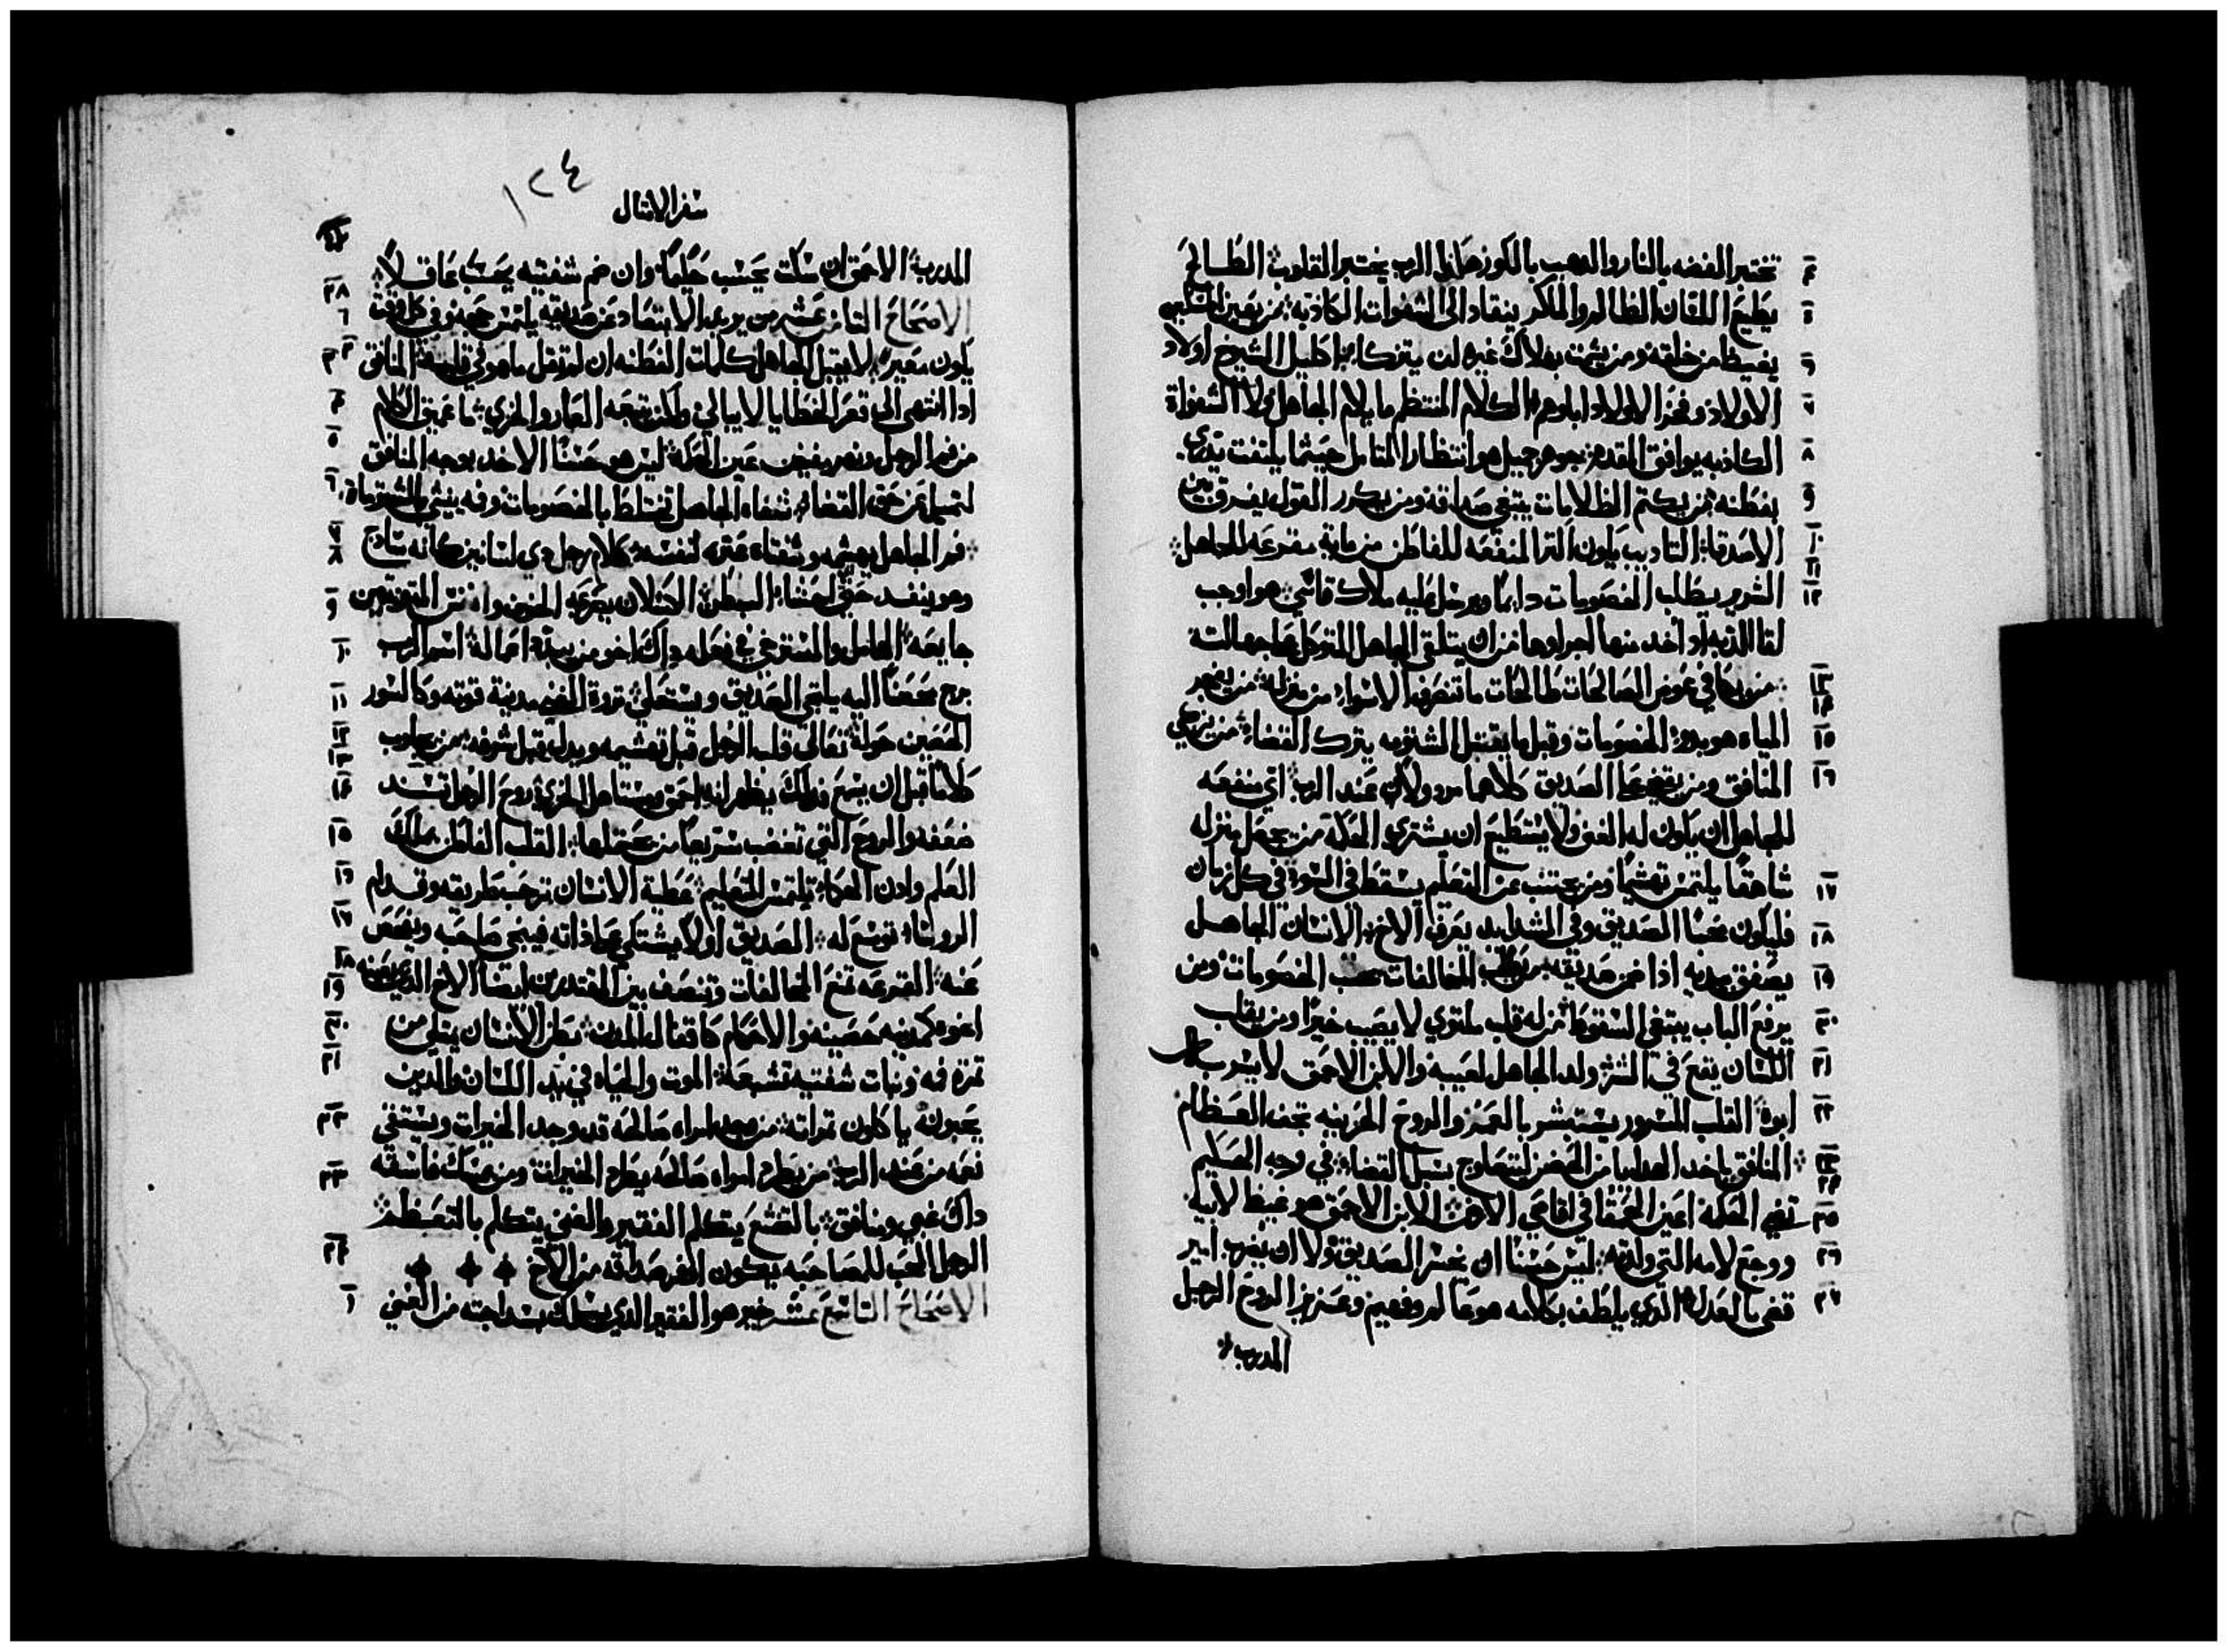 تختبر الفضه بالنار والدهب بالكور هكذا الرب يختبر القلوب الطالح
يطيع اللسان الظالم والماكر ينقاد الى الشفوات الكاذبه من يعير المسكين
يغيظ من خلقه ومن يشمت بهلاك غيره لن يتزكا اكليل الشيوخ اولاد
الاولاد وفخر الاولاد اباوهم الكلام المنتظم ما يلايم الجاهل ولا الشفواة
الكاذبه يوافق المقدم جوهر جميل هو انتظار المتامل حيثما يلتفت يتدبر
بفطنه من يكتم الظلامات يبتغي صداقه ومن يكرر القول يفرق بين
الاصدقا التاديب يكون اكثر المنفعه للفاطن من ماية مقرعه للجاهل
الشرير يطلب الخصومات دايما ويرسل عليه ملاك قاسي هو اوجب
لقا الدبه اد اخد منها اجراوها من ان يتلقى الجاهل المتوكل على جهالته
من يكافي عوض الصالحات طالحات ما تنصرف الاسواء من منزله من يفجر
المياه هو بدو الخصومات وقبل ما يقتبل الشتومه يترك القضاء من يزكي
المنافق ومن يقضي على الصديق كلاهما مردولان عند الرب اي منفعه
للجاهل ان يكون له الغنى ولا يستطيع ان يشتري الحكمة من يجعل منزله
شاهقا يلتمس تهشيما ومن يجتنب عن التعلم يسقط في السوء في كل زمان
فليكون محبا الصديق وفي الشدايد يعرف الاخ الانسان الجاهل
يصفق بيديه اذا ضمن صديقه من يطلب المخالفات يحب الخصومات ومن
يرفع الباب يبتغي السقوط من له قلب ملتوي لا يصيب خيرا ومن يقلب
اللسان يقع في الشر ولد الجاهل لعيبه والابن الاحمق لا يسر به
ابوه القلب المسرور يستبشر بالعمر والروح الحزينه تجفف العظام
المنافق ياخد الهدايا من الحضن ليتعاوج سبل القضاء في وجه الحكيم
تضي الحكمه اعين الحمقا في اقاصي الارض الابن الاحمق هو غيظ لابيه
ووجع لامه التي ولدته ليس حسنا ان يخسر الصديق ولا ان يضرب امير
قضى بالعدل الذي يلطف بكلامه هو عالم وفهيم وعزيز الروح الرجل
المدرب
سفر الامثال
١٢٤
المدرب الاحمق ان سكت يحسب حكيما وان ضم شفتيه يحسب عاقلا
الاصحاح الثامن عشر من يريد الابتعاد عن صديقه يلتمس حجه وفي كل وقت
يكون معيرا لا يقبل الجاهل كلمات الفطنه ان لم تقل ما هو في قلبه المنافق
ادا انتهى الى قعر الخطايا لا يبالي ولكن يتبعه العار والخزي ما عميق الكلام
من فم الرجل ونهر يفيض عين الحكمه ليس هو حسنا الاخد بوجه المنافق
لتميل عن حق القضاء شفاه الجاهل تختلط بالخصومات وفه ينشي الشتومات
فم الجاهل يهشمه وشفتاه عثره لنفسه كلام رجل دي لسانين كانه ساذج
وهو ينفد حتى لحشاء البطن الكسلان يصرعه الخوف وانفس المتوندين
جايعه الحامل والمسترخي في فعله داك اخو من يبدد اعماله اسم الرب
برج محصنا اليه يلتجي الصديق ويستعلى ثروة الغني مدينة قوته وكالسور
الحصين حوله تعالى قلب الرجل قبل تهشيمه ويدل قبل شرفه من يجاوب
كلاما قبل ان يسمع فذلك يظهر انه احمق ومستاهل الخزي روح الرجل تسند
ضعفه والروح التي تغضب سريعا من يحتملها القلب الفاطن يملك
العلم وادن الحكماء تلتمس التعليم عطية الانسان ترحب طريقه وقدام
الروساء توسع له الصديق اولا يشتكي على ذاته فيجي صاحبه ويفحص
عنه القرعه تمنع المخالفات وتنصف بين المقتدرين ايضا الاخ الذي يعينه
اخوه كمدينه حصينه والاحكام كاقفال المدن بطن الانسان يمتلي من
ثمرة فه ونبات شفتيه تشبعه الموت والحياه في يد اللسان والدين
يحبونه ياكلون ثمراته من وجد امراه صالحه قد وجد الخيرات ويستقي
نعمه من عند الرب من يطرد امراه صالحه يطرد الخيرات ومن يمسك فاسقه
داك غبي ومنافق بالتخشع يتكلم الفقير والغني يتكلم بالتعظم
الرجل المحب للمصاحبه يكون افر صداقه من الاخ
الاصحاح التاسع عشر خير هو الفقير الذي يسلك بسداجته من الغني